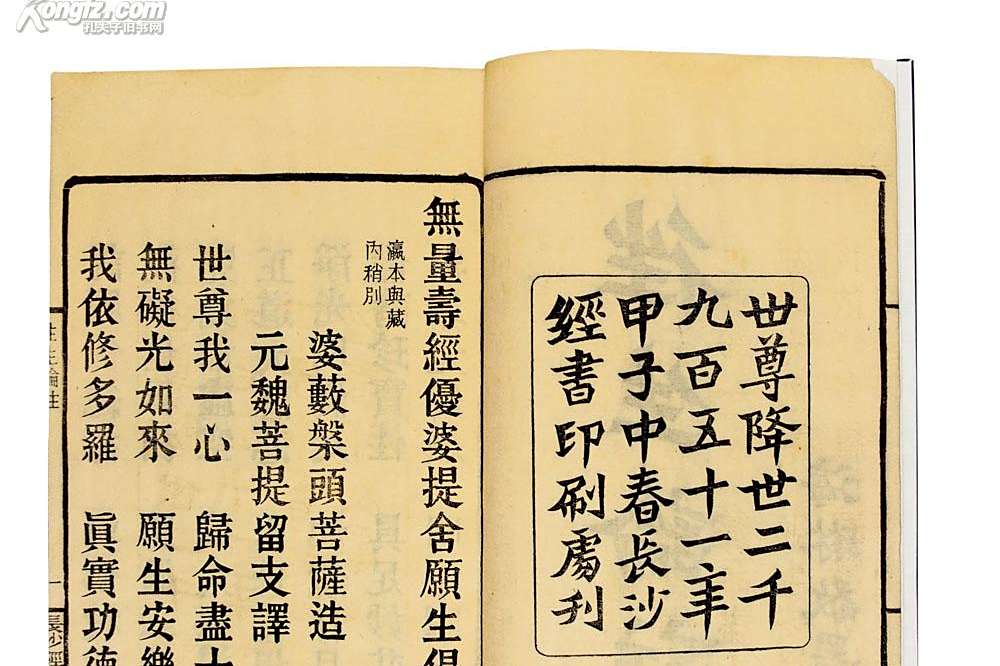 Kongfz.com
孔夫子旧书网
世尊降世二千
九百五十一年
甲子中春長沙
經書印刷處刋
無量壽經優婆提舍願生偈
瀛本與藏
內稍別
婆藪槃頭菩薩造
元魏菩提留支譯
世尊我一心　歸命盡十
無礙光如來　願生安樂
我依修多羅　眞實功德
往生論註
一
長沙經